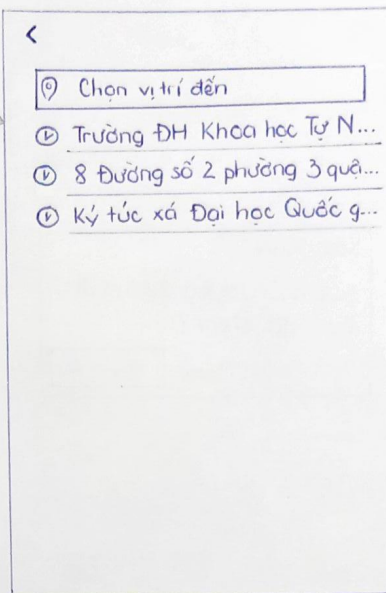 Chọn vị trí đến
Trường ĐH Khoa học Tự N...
8 Đường số 2 phường 3 quậ...
Ký túc xá Đại học Quốc g...